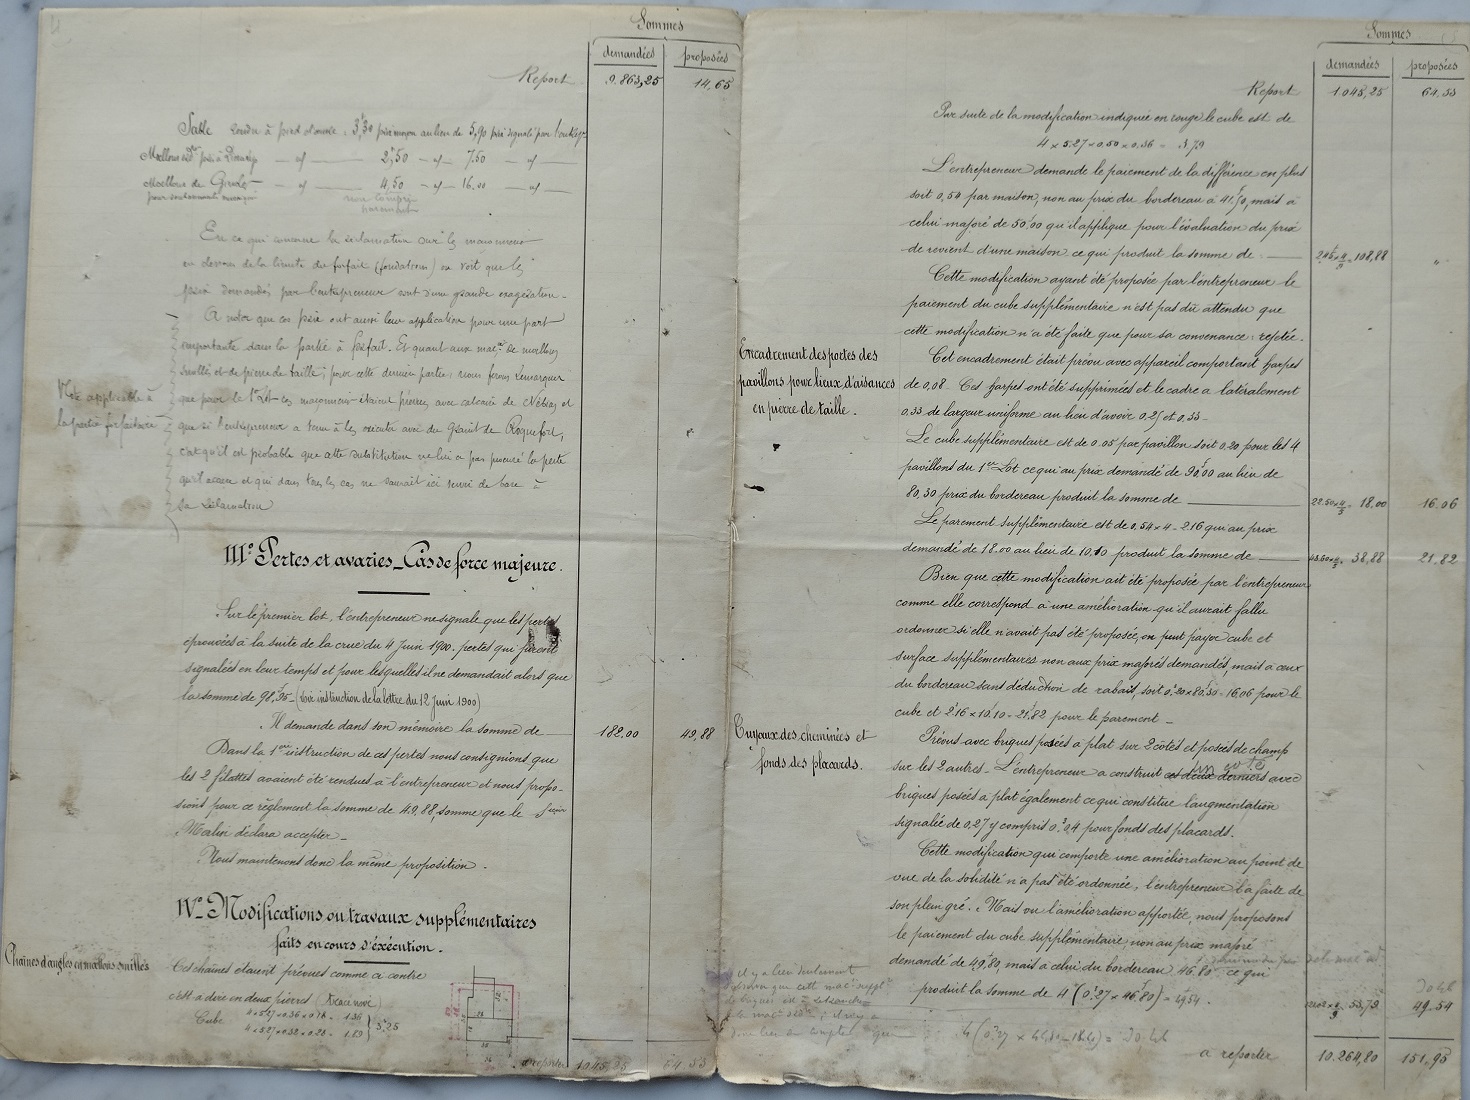 Sommes
demandées proposées
Report 9.863,25 14,65
Sable rendu à pied d'œuvre : 3,30 prix moyen au lieu de 5,90 prix signalé par l'entrep
2,50 7.50
Moellons de 4,50 16.00
non compris
parement
En ce qui concerne la réclamation sur les maçonneries
en dessous de la limite du forfait (fondations) on voit que les
prix demandés par l'entrepreneur sont d'une grande exagération.
A noter que ces prix ont aussi leur application pour une part
importante dans la partie à forfait. Et quant aux maç. de moellons
smillés et de pierre de taille, pour cette dernière partie, nous ferons remarquer
que pour le 1er Lot ces maçonneries étaient prévues avec calcaire de et
que si l'entrepreneur a tenu à les exécuter avec du Granit de Roquefort,
c'est qu'il est probable que cette substitution ne lui a pas procuré la perte
qu'il accuse et qui dans tous les cas ne saurait ici servir de base à
sa réclamation
Note applicable à
la partie forfaitaire
III° Pertes et avaries_Cas de force majeure.
Sur le premier lot, l'entrepreneur ne signale que les pertes
éprouvées à la suite de la crue du 4 Juin 1900. pertes qui furent
signalées en leur temps et pour lesquelles il ne demandait alors que
la somme de 98,95_(Voir instruction de la lettre du 12 Juin 1900)
Il demande dans son mémoire la somme de 182,00 49,88
Dans la 1ère instruction de ces pertes nous consignions que
les 2 filattes avaient été rendues à l'entrepreneur et nous propo-
sions pour ce règlement la somme de 49,88, somme que le Sieur
Malin déclara accepter_
Nous maintenons donc la même proposition.
IV°_Modifications ou travaux supplémentaires
faits en cours d'éxécution.
Chaînes d'angles en moellons smillés
Ces chaînes étaient prévues comme ci contre
c'est à dire en deux pierres (tracé noir)
Cube 4 x 5.27 x 0.36 x 0.18 = 1.36
4 x 5.27 x 0.32 x 0.28 = 1.89
3,25
à reporter 1045,25 64 53
Sommes
demandées proposées
Report 1.045,25 64.53
Par suite de la modification indiquée en rouge le cube est de
4 x 5.27 x 0.50 x 0.36 = 3.79
L'entrepreneur demande le paiement de la différence en plus
soit 0,54 par maison, non au prix du bordereau à 41,70, mais à
celui majoré de 50,00 qu'il applique pour l'évaluation du prix
de revient d'une maison ce qui produit la somme de : 108,88 "
Cette modification ayant été proposée par l'entrepreneur le
paiement du cube supplémentaire n'est pas dû attendu que
cette modification n'a été faite que pour sa convenance : rejetée.
Encadrement des portes des
pavillons pour lieux d'aisances
en pierre de taille.
Cet encadrement était prévu avec appareil comportant harpes
de 0.08. Ces harpes ont été supprimées et le cadre a latéralement
0.33 de largeur uniforme au lieu d'avoir 0,25 et 0,33_
Le cube supplémentaire est de 0.05 par pavillon soit 0,20 pour les 4
pavillons du 1er Lot ce qui au prix demandé de 90,00 au lieu de
80,30 prix du bordereau produit la somme de 18,00 16.06
Le parement supplémentaire est de 0,54 x 4 = 2.16 qui au prix
demandé de 18.00 au lieu de 10.10 produit la somme de 38,88 21,82
Bien que cette modification ait été proposée par l'entrepreneur
comme elle correspond à une amélioration qu'il aurait fallu
ordonner si elle n'avait pas été proposée, on peut payer cube et
surface supplémentaires non aux prix majorés demandés, mais à ceux
du bordereau sans déduction de rabais, soit 0,20 x 80,30 = 16,06 pour le
cube et 2,16 x 10,10 = 21,82 pour le parement_
Tuyaux des cheminées et
fonds des placards.
Prévus avec briques posées à plat sur 2 côtés et posées de champ
sur les 2 autres_L'entrepreneur a construit ces deux derniers avec
briques posées à plat également ce qui constitue l'augmentation
signalée de 0,27 y compris 0,04 pour fonds des placards.
Cette modification qui comporte une amélioration au point de
vue de la solidité n'a pas été ordonnée, l'entrepreneur l'a faite de
son plein gré. Mais vu l'amélioration apportée, nous proposons
le paiement du cube supplémentaire, non au prix majoré
demandé de 49,80, mais à celui du bordereau 46,80 ce qui
produit la somme de 4 (0,27 x 46,80) = 49,54. 53,79 49.54
il y a lieu seulement
à reporter 10.264,80 151,95